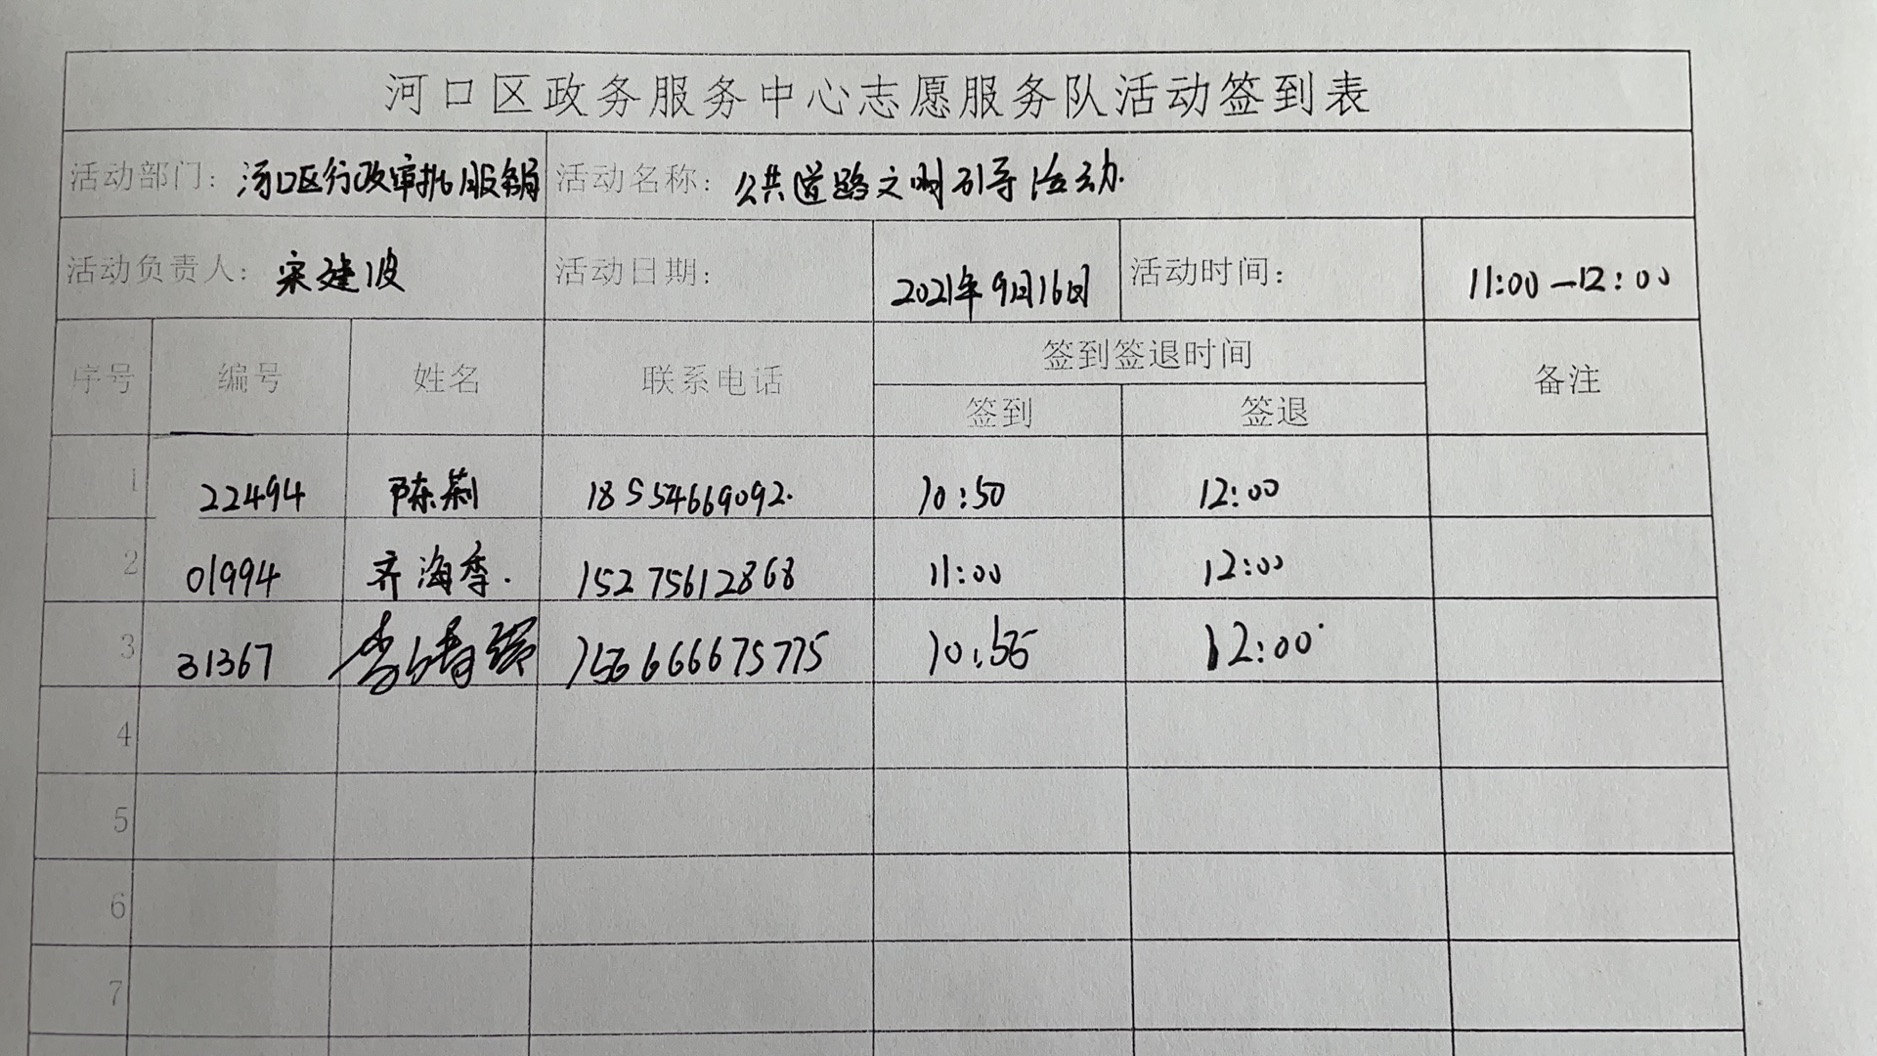 河口区政务服务中心志愿服务队活动签到表
活动部门：河口区行政审批服务局 活动名称：公共道路文明引导活动.
活动负责人：宋建波 活动日期： 2021年9月16日 活动时间： 11:00—12:00
序号 编号 姓名 联系电话 签到签退时间 备注
签到 签退
1 22494 陈荆 18554669092. 10:50 12:00
2 01994 齐海季. 15275612868 11:00 12:00
3 31367 10:55 12:00
4
5
6
7